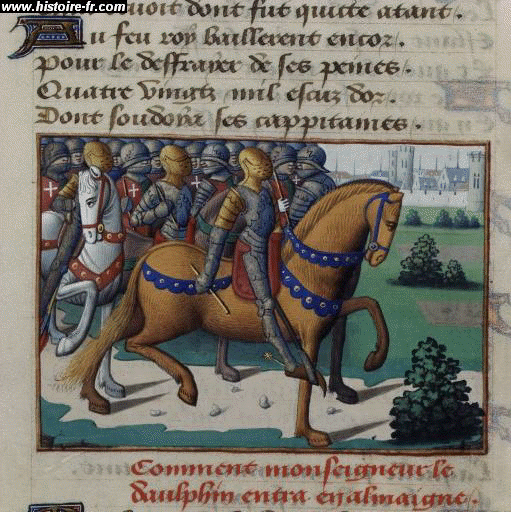 www.histoire-fr.com
dont fut quicte atant.
Au feu roy baillerent encor.
Pour le deffrayer de ses peines.
Quatre vingtz mil escuz dor.
Dont soudoya ses cappitaines.
Comment monseigneur le
daulphin entra en almaigne.